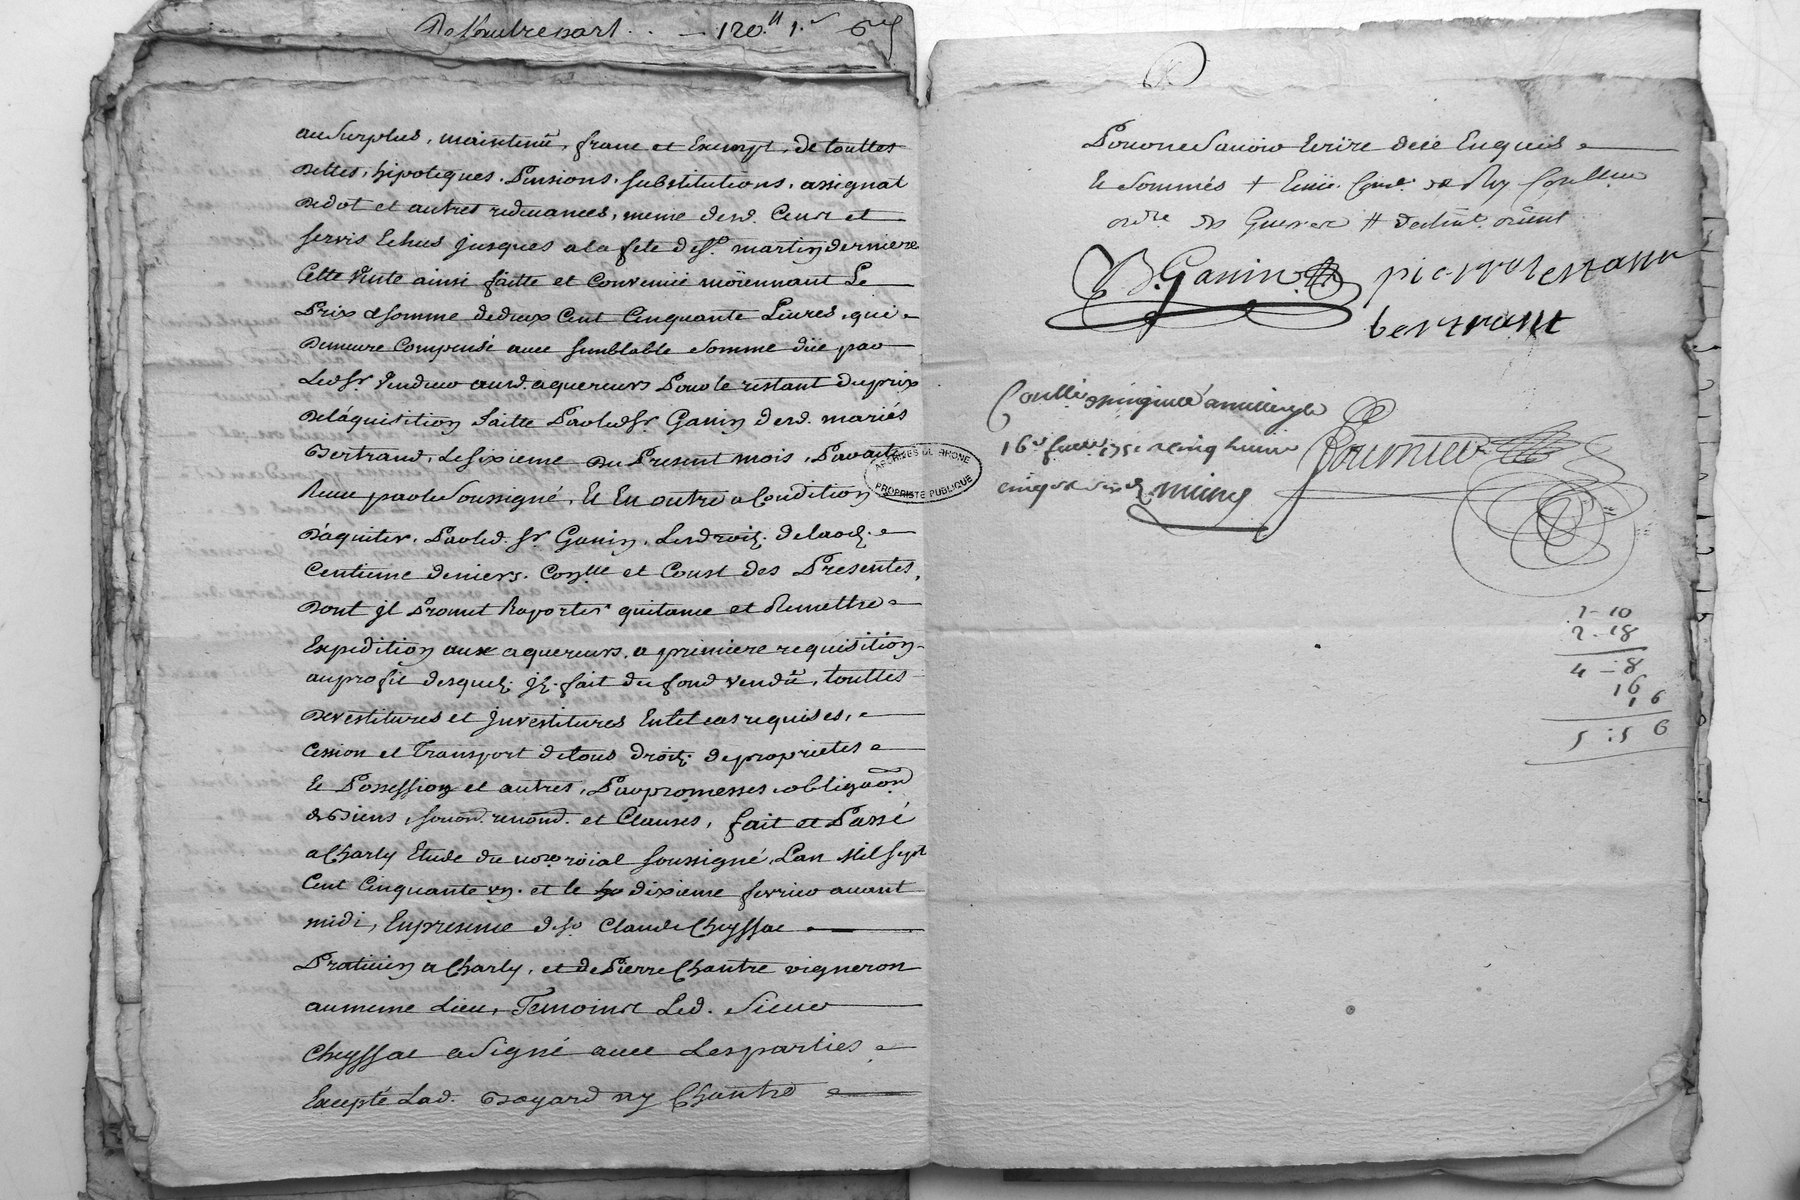 De l'autre part . . — 120.ᵗᵗ 1.ˢ 6ᵈ
au surplus, maintenü, franc et Exempt, de touttes
Dettes, hipoteques, Pensions, substitutions, assignat
De dot et autres redevances, meme desd. Cens et
servis Echus jusques a la fete de St. martin derniere
Cette Vente ainsi faitte et Convenüe moïennant Le
Prix & somme de deux Cent Cinquante Livres, qui
Demeure Compensé avec semblable somme düe par
Led. Sr. Vendeur auxd. aquereurs Pour le restant du prix
De láquisition faitte Par led. Sr. Ganin desd. mariés
Bertrand, Le sixieme Du Present mois, Par acte
Recu par le Soussigné, Et En outre a Condition
D'aquiter, Par led. Sr. Ganin, Les droits de laods
Centieme deniers, Conlle et Coust des Presentes,
Dont jl Promet Raporter quitance et Remettre
Expedition aux aquereurs, a premiere requisition
au profit desquels jl fait du fond vendü, touttes
Devestitures et jnvestitures En tel cas requises,
Cession et Transport de tous droits de proprietes
Et Possession et autres, Par promesses obligaon
de Biens, soumd. renond. et Clauses, fait et Passé
a Charly Etude du nore roïal soussigné, L'an Mil sept
Cent Cinquante un et le dixieme fevrier avant
midi, En presence de Sr. Claude Cheyssac
Praticien a Charly, et de Pierre Chantre vigneron
au meme Lieu, Temoins Led. Sieur
Cheyssac a Signé avec Les parties
Excepté Lad. Bayard ny Chantre
ARCHIVES DU RHONE
PROPRIÉTÉ PUBLIQUE
Pour ne Savoir Ecrire de ce Enquis
Et Sommés + Ecuïer Coner. du Roy
ordre. des Guerres # orient
B. Ganin pierre
bertrant
Conllé a millery le
16e fevrier 1751 Recu cinq livres
cinq s. six d.
Fournier
1 - 10
2 - 18
4 - 8
16
1 6
5 : 5 6